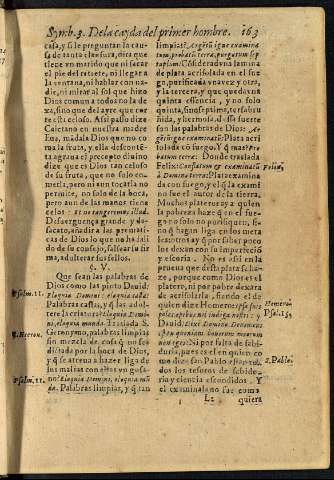 Symb. 3. De la cayda del primer hombre. 163
casa, y si le preguntan la causa de tanta clausura, dize que
tiene vn marido que ni sacar
el pie del retrete, ni llegar a
la ventana, ni hablar con nadie, ni mirar al sol que hizo
Dios comun a todos no la dexa, sino que del ayre que corre
esta celoso. Assi passo dize
Caietano en nuestra madre
Eua, mãdale Dios que no coma la fruta, y ella descontenta agraua el precepto diuino
dize que es Dios tan celoso
de su fruta, que no solo comella, pero ni aun tocarla no
permite, no solo de la boca,
pero aun de las manos tiene
celos
Desuerguença grande, y desacato, añadir a las prematicas de Dios lo que no ha salido de su consejo, falsear su firma, adulterar sus sellos.
§. V.
Que sean las palabras de
Dios como las pinto Dauid:
Eloquia Domini, eloquia casta:
Palabras castas, y q̃ las adultere la criatura? Eloquia Domini
eloquia munda. Traslada S.
Geronymo, palabras limpias
sin mezcla de cosa q̃ no sea
dictada por la boca de Dios,
y q̃ se atreua a hazer liga de
sus malitas con estas vn gusano? Eloquia Domini, eloquia munda. Palabras limpias, y q̃ tan
Psalm. 11.
S. Hieron.
Psalm. 11.
limpias? Argentũ igne examinatum, probatũ terræ, purgatum septuplum: Cõsiderad vna lamina
de plata acrisolada en el fuego, purificada vna vez, y otra,
y la tercera, y que queda vna
quinta essencia, y no solo
quinta, sino septima, tersa, buñida, y hermosa, dessa suerte
son las palabras de Dios: Argẽtũ igne examinatum: Plata acrisolada cõ fuego. Y q̃ mas? Probatum terræ: Donde traslada
Felix: Conflatum & examinatũ
à Domino terræ: Plata examinada con fuego, y el q̃ la examinò fue el autor de la tierra.
Muchos plateros ay a quien
la pobreza haze q̃ en el fuego no solo no purifiquen, sino q̃ hagan liga en los metales contra
y q̃ por saber poco
los dexan con su imperfeció
y escoria. No es assi en la
prueua que desta plata se haze, porque como Dios es el
platero, ni por pobre dexarà
de acrisolarla, siendo el de
quien dize Homero: Ipse suis
pollens opibus, nil indiga nostri: y
Dauid: Dixi Domino Deus meus
es tu, quoniam bonorum meorum
non eges: Ni por falta de sabiduria, pues es el en quien como dize san Pablo esta todos los tesoros de sabiduria y ciencia escondidos. Y
el examinarlo fue como
Felix.
Homero.
Psal. 15.
S. Pablo.
L 2 quiera